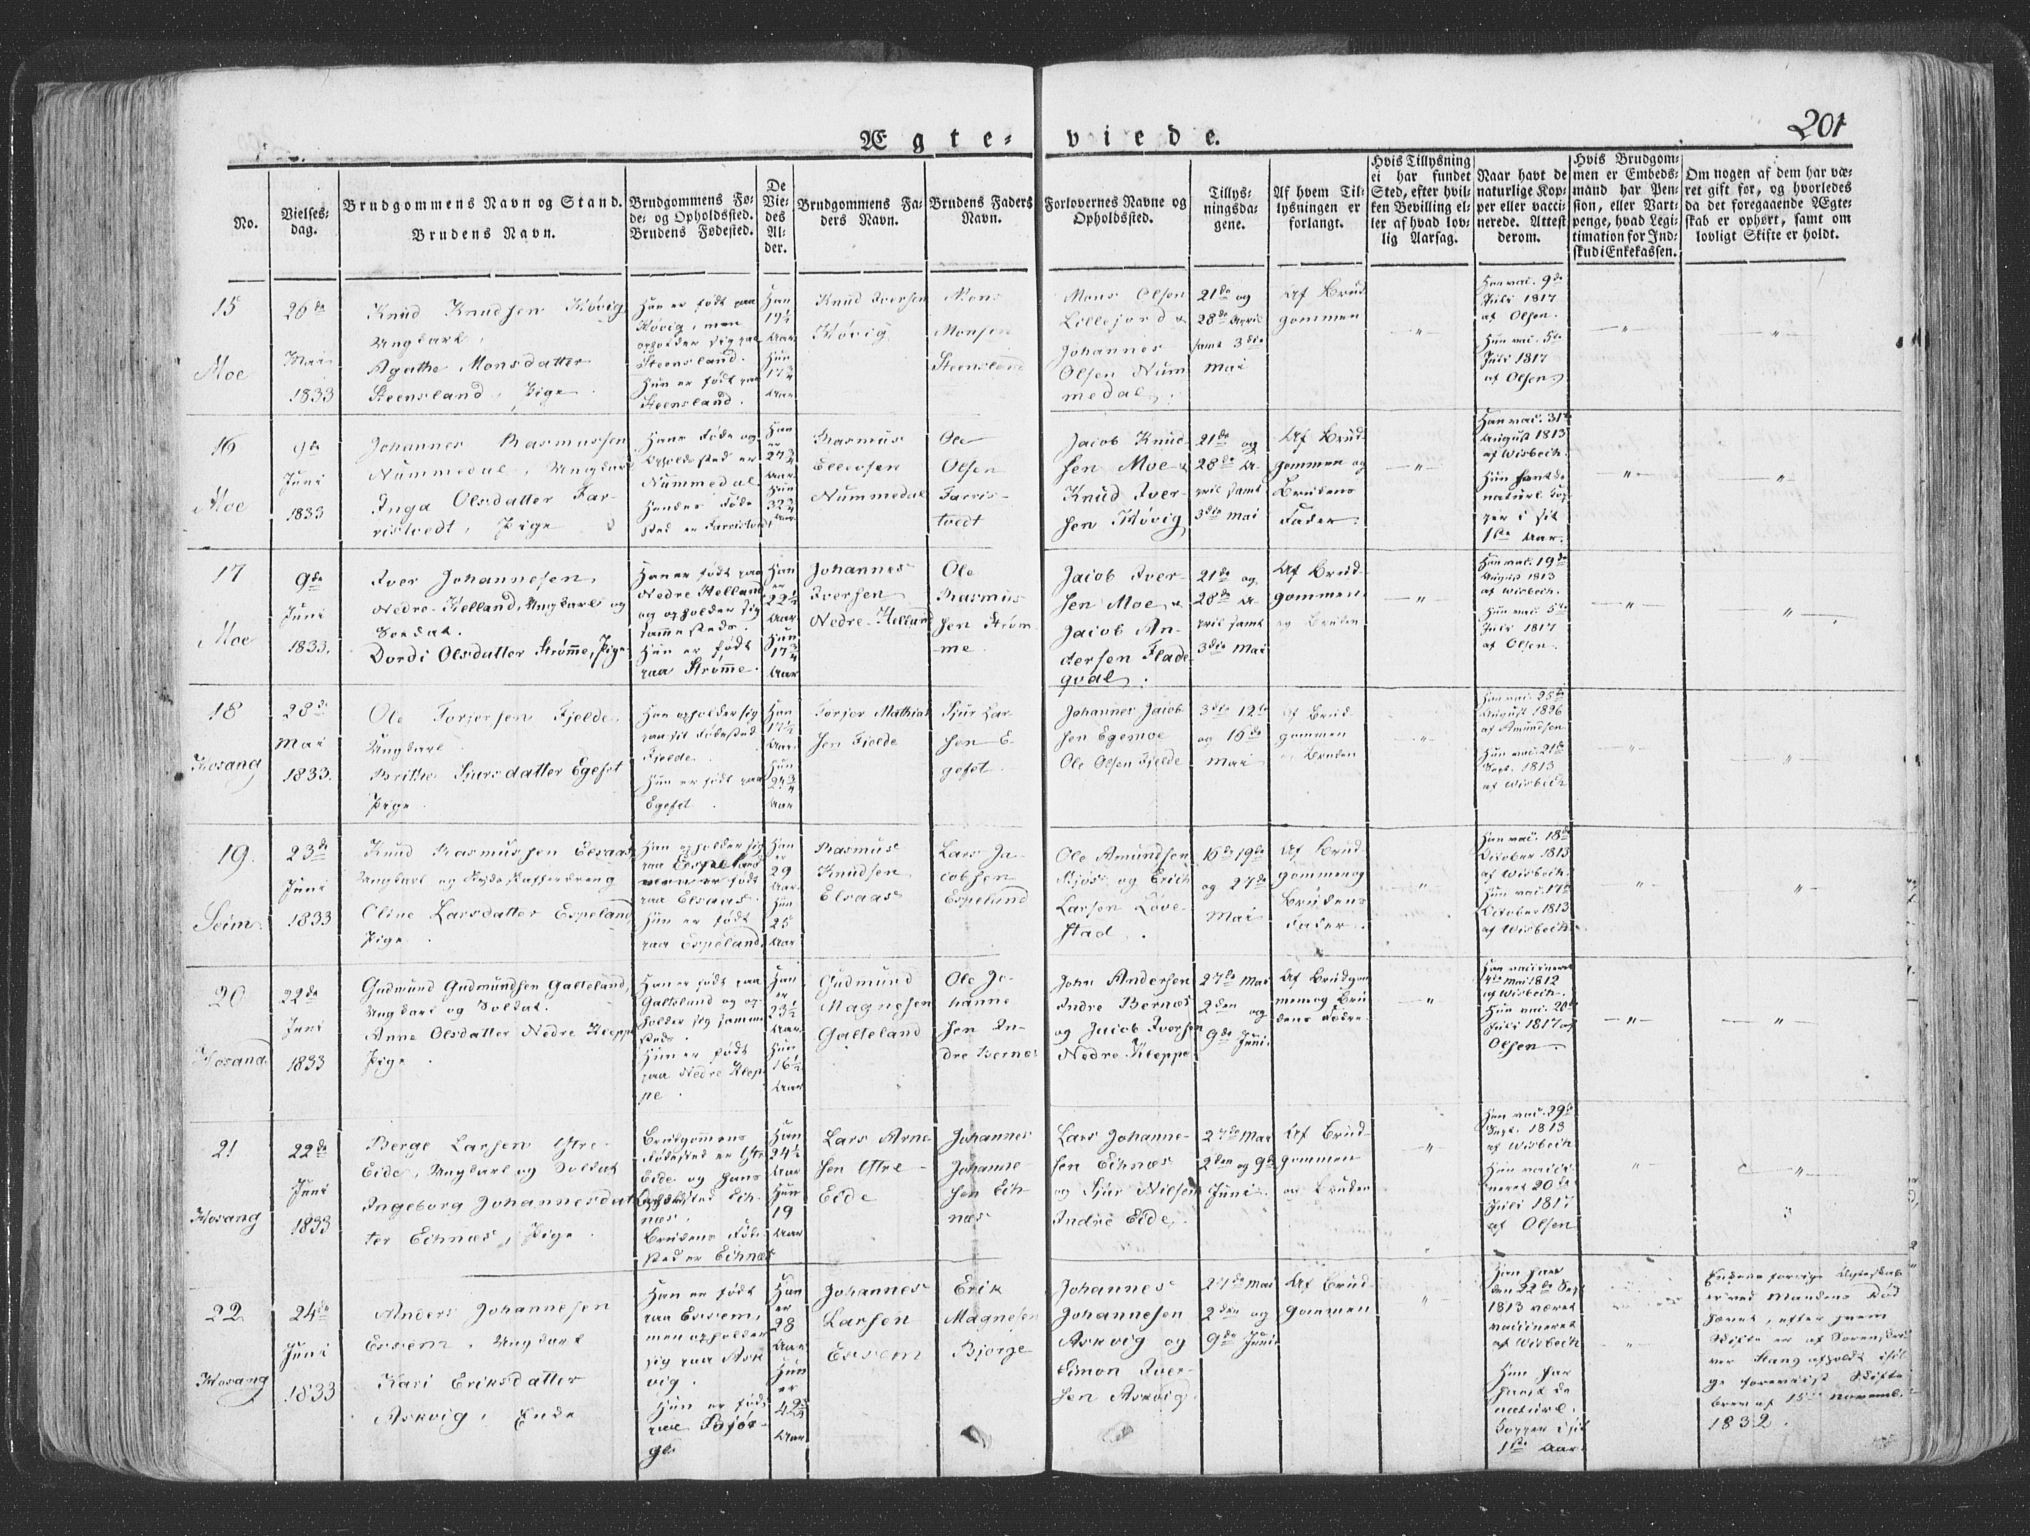 201
Ægte-viede.
No.
Vielses-
dag.
Brudgommens Navn og Stand.
Brudens Navn.
Brudgommens Fø-
de- og Opholdssted.
Brudens Fødested.
De
Vie-
des
Al-
der.
Brudgommens Fa-
ders Navn.
Brudens Faders
Navn.
Forlovernes Navne og
Opholdssted.
Tillys-
ningsda-
gene.
Af hvem Til-
lysningen er
forlangt.
Hvis Tillysning
ei har fundet
Sted, efter hvil-
ken Bevilling el-
ler af hvad lov-
lig Aarsag.
Naar havt de
naturlige Kop-
per eller vacci-
nerede. Attest
derom.
Hvis Brudgom-
men er Embeds-
mand har Pen-
sion, eller Vart-
penge, hvad Legi-
timation for Ind-
skud i Enkekassen.
Om nogen af dem har væ-
ret gift før, og hvorledes
da det foregaaende Ægte-
skab er ophørt, samt om
lovligt Skifte er holdt.
15
Moe
26de
Mai
1833
Knud Knudsen Høvig
Ungkarl.
Agathe Monsdatter
Steensland, Pige.
Han er født paa
Høvig, men
opholder sig paa
Steensland.
Hun er født paa
Steensland.
Han
19½
Aar
Hun
17¾
Aar
Knud Iversen
Høvig
Mons
Monsen
Steensland
Mons Olsen
Lillejord &
Johannes
Olsen Num
medal.
21de og
28de April
samt 3die
Mai
Af Brud
gommen
Han vac. 9de
Juli 1817
af Olsen.
Hun vac. 5te
Juli 1817
af Olsen
16
Moe
9de
Juni
1833
Johannes Rasmussen
Nummedal, Ungkarl
Inga Olsdatter Far-
ristvedt, Pige
Hans Føde og
Opholdssted er
Nummedal
Hendes Føde
sted er Farristvedt
Han
er
27¾
Aar
Hun
32¾
Aar
Rasmus
Ellersen
Nummedal
Ole
Olsen
Farris-
tvedt
Jacob Knud
sen Moe &
Knud Iver-
sen Høvig
21de og
28de A-
pril samt
3die Mai
Af Brud
gommen og
Brudens
Fader.
Han vac. 31te
August 1813
af Wisbech.
Hun havt de
naturl. Kop
per i sit
1ste Aar.
17
Moe
9de
Juni
1833.
Iver Johannesen
Nedre-Helland, Ungkarl og
Soldat.
Dordi Olsdatter Strømme, Pige
Han er født paa
Nedre Helland
og opholder sig
sammesteds.
Hun er født
paa Strømme.
Han
er
22½
Aar
Hun
17¾
Aar
Johannes
Iversen
Nedre-Helland
Ole
Rasmus
sen Strøm-
me.
Jacob Iver-
sen Moe &
Jacob An-
dersen Flade
qval.
21de og
28de A-
pril samt
3die Mai
Af Brud-
gommen
og Bruden
Han vac. 19de
August 1813
af Wisbech.
Hun vac. 5te
Juli 1817
af Olsen
18
Hosang
28de
Mai
1833.
Ole Torjersen Fjelde
Ungkarl
Brithe Sjursdatter Egeset
Pige.
Han opholder sig
paa sit Fødested
Fjelde.
Hun er født paa
Egeset.
Han
17½
Aar.
Hun
24¾
Aar
Torjer Mathias
sen Fjelde
Sjur Lar-
sen E-
geset.
Johannes Jacob
sen Egemoe
Ole Olsen Fjelde
3die 12te
og 16de
Mai
Af Brud
gommen
og Bruden
Han vac. 25de
August 1826
af Amundsen
Hun vac. 21de
Sept. 1813
af Wisbech
19.
Seim.
23de
Juni
1833
Knud Rasmussen Elsaas
Ungkarl og
Oline Larsdatter Espeland
Pige.
Han opholder sig
paa Espeland
men er født
paa Elsaas.
Hun er født
paa Espeland.
Han
er
29
Aar.
Hun
25
Aar
Rasmus
Knudsen
Elsaas
Lars Ja-
cobsen
Espeland
Ole Amundsen
og Erich
Larsen Løve-
stad.
16de 19de
og 27de
Mai
Af Brud
gommen og
Brudens
Fader.
Han vac. 18de
October 1813
af Wisbech.
Hun vac. 17de
October 1813
af Wisbech
20
Hosang
22de
Juni
1833
Gudmund Gudmundsen Galteland,
Ungkarl og Soldat.
Anne Olsdatter Nedre Kleppe
Pige.
Han er født paa
Galteland og op-
holder sig samme
steds.
Hun er født
paa Nedre Klep-
pe.
Han
er
23½
Aar.
Hun
16½
Aar
Gudmund
Magnesen
Galteland
Ole Jo-
hanne
sen In-
dre Bernæs
John Andersen
Indre Bernæs
og Jacob Iversen
Nedre Kleppe
27de Mai
2den og
9de Juni.
Af Brudgom
men og Bru
dens Fødre
Han vaccineret
4de Mai 1812
af Wisbech.
Hun vac. 20de
Juli 1817 af
Olsen.
21
Hosang
22de
Juni
1833
Berge Larsen Ytre-
Eide, Ungkarl og Soldat
Ingeborg Johannesdat-
ter Echnæs, Pige.
Brudgommens
Fødested er Ytre
Eide og hans
Opholdssted Ech-
næs.
Brudens Føde-
sted er Echnæs
Han
24½
Aar
Hun
19
Aar
Lars Arne
sen Ytre-
Eide
Johannes
Johanne-
sen Ech
næs
Lars Johanne-
sen Echnæs
og Sjur Nilsen
Indre Eide.
27de Mai
2den og 9de
Juni.
Af Brud
gommen
og Bruden
Han vac. 29de
Sept. 1813
af Wisbech
Hun vacci-
neret 20de
Juli 1817
af Olsen
22
Hosang
24de
Juni
1833
Anders Johannesen
Essem, Ungkarl
Kari Eriksdatter
Askvig, Enke
Han er født
paa Essem,
men opholder
sig paa Ask
vig.
Hun er født
paa Bjør-
ge.
Han
er
28
Aar
Hun
er
42¾
Aar
Johannes
Larsen
Essem
Erik
Magnesen
Bjørge
Johannes
Johannesen
Askvig og
Simon Iver-
sen Askvig.
27de Mai
2den og
9de Juni
Af Brud
gommen
Han har
den 22de Sept
1813 været
vaccineret
af Wisbech
Hun har
havt de
naturl.
Kopper i sit
1ste Aar
Enkens forrige Ægteskab
er ved Mandens Død
hævet, efter hvem
Skifte er af Sorenskri
ver Stang afholdt iføl
ge forevist Skifte
brev af 15de Novemb.
1832.